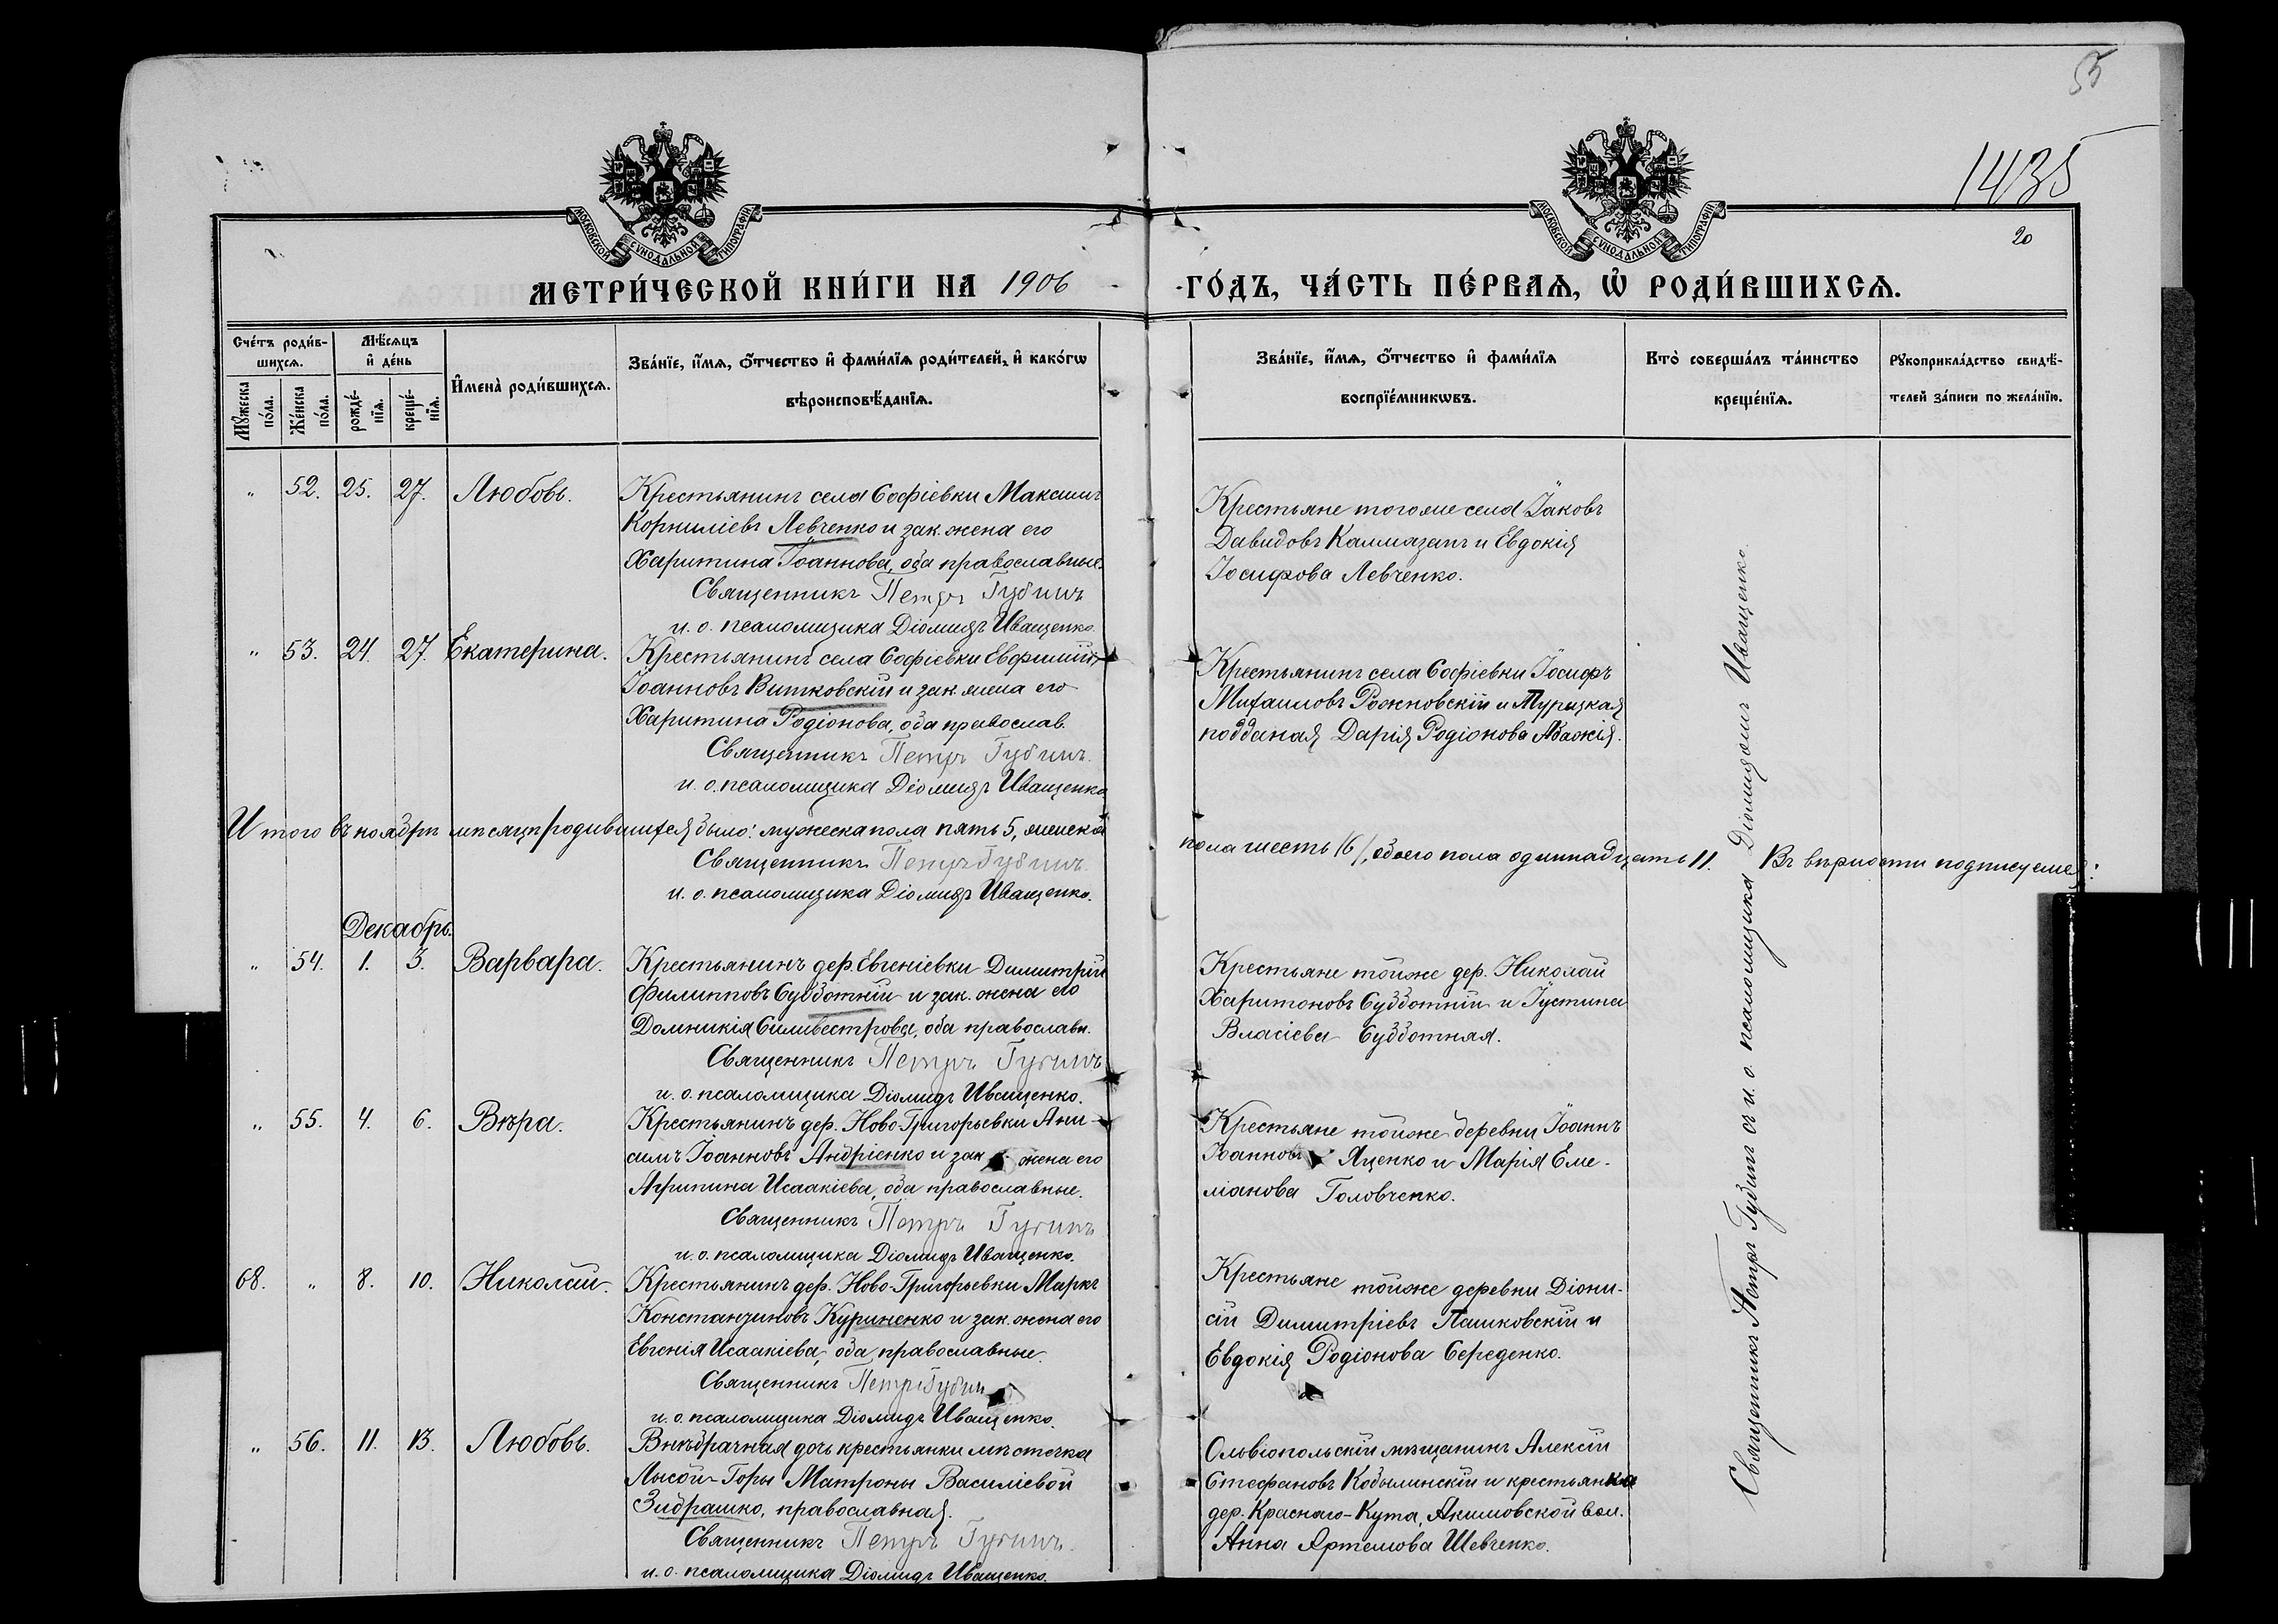 55
1435
20
МОСКОВСКОЙ СѴНОДАЛЬНОЙ ТИПОГРАФІИ
МОСКОВСКОЙ СѴНОДАЛЬНОЙ ТИПОГРАФІИ
МЕТРИ́ЧЕСКОЙ КНИ́ГИ НА 1906 ГО́ДЪ, ЧА́СТЬ ПЕ́РВАѦ, Ѡ҆ РОДИ́ВШИХСѦ.
Сче́тъ роди́в-
шихсѧ.
Мꙋ́жеска
по́ла.
Же́нска
по́ла.
Мѣ́сѧцъ
и҆ де́нь
рожде́-
нїѧ.
креще́-
нїѧ.
И҆мена̀ роди́вшихсѧ.
Зва́нїе, и҆́мѧ, ѻ҆́тчество и҆ фами́лїѧ роди́телей, и҆ како́гѡ
вѣроисповѣ́данїѧ.
Зва́нїе, и҆́мѧ, ѻ҆́тчество и҆ фами́лїѧ
воспрїе́мникѡвъ.
Кто̀ соверша́лъ та́инство
креще́нїѧ.
Рꙋкоприкла́дство свидѣ́-
телей за́писи по жела́нїю.
„ 52. 25. 27. Любовь.
Крестьянинъ села Софіевки Максимъ
Корниліевъ Левченко и зак. жена его
Харитина Іоаннова, оба православные.
Священникъ Петръ Губинъ
и. о. псаломщика Діомидъ Иващенко.
Крестьяне тогоже села Іаковъ
Давидовъ Калмазанъ и Евдокія
Іосифова Левченко.
„ 53. 24. 27. Екатерина.
Крестьянинъ села Софіевки Евфимій
Іоанновъ Витковскій и зак. жена его
Харитина Родіонова, оба православ.
Священникъ Петръ Губинъ.
и. о. псаломщика Діомидъ Иващенко
Крестьянинъ села Софіевки Іосифъ
Михаиловъ Рожновскій и Турецкая
подданая Дарія Родіонова
Итого въ ноябрѣ мѣсяцѣ родившихся было: мужеска пола пять 5, женска пола шесть /6/, обоего пола одиннадцать 11. Въ вѣрности подписуемся:
Священникъ Петръ Губинъ.
и. о. псаломщика Діомидъ Иващенко.
Декабрь.
„ 54. 1. 3. Варвара.
Крестьянинъ дер. Евгеніевки Димитрій
Филипповъ Субботній и зак. жена его
Домникія Силивестрова, оба православн.
Священникъ Петръ Губинъ
и. о. псаломщика Діомидъ Иващенко.
Крестьяне тойже дер. Николай
Харитоновъ Субботній и Іустина
Власіева Субботняя.
„ 55. 4. 6. Вѣра.
Крестьянинъ дер. Ново-Григорьевки Ани-
симъ Іоанновъ Андріенко и зак. жена его
Агрипина Исаакіева, оба православные.
Священникъ Петръ Губинъ
и. о. псаломщика Діомидъ Иващенко.
Крестьяне тойже деревни Іоаннъ
Іоанновъ Яценко и Марія Еме-
ліанова Головченко.
68. „ 8. 10. Николай.
Крестьянинъ дер. Ново-Григорьевки Маркъ
Константиновъ Куриненко и зак. жена его
Евгенія Исаакіева, оба православные.
Священникъ Петръ Губинъ
и. о. псаломщика Діомидъ Иващенко.
Крестьяне тойже деревни Діони-
сій Димитріевъ Пашковскій и
Евдокія Родіонова Середенко.
„ 56. 11. 13. Любовь.
Внѣбрачная дочь крестьянки мѣстечка
Лысой-Горы Матроны Василіевой
Зибрашко, православная.
Священникъ Петръ Губинъ.
и. о. псаломщика Діомидъ Иващенко.
Ольвіопольскій мѣщанинъ Алексій
Стефановъ Кобылинскій и крестьянка
дер. Краснаго-Кута, Акимовской вол.
Анна Артемова Шевченко.
Священникъ Петръ Губинъ съ и. о. псаломщика Діомидомъ Иващенко.